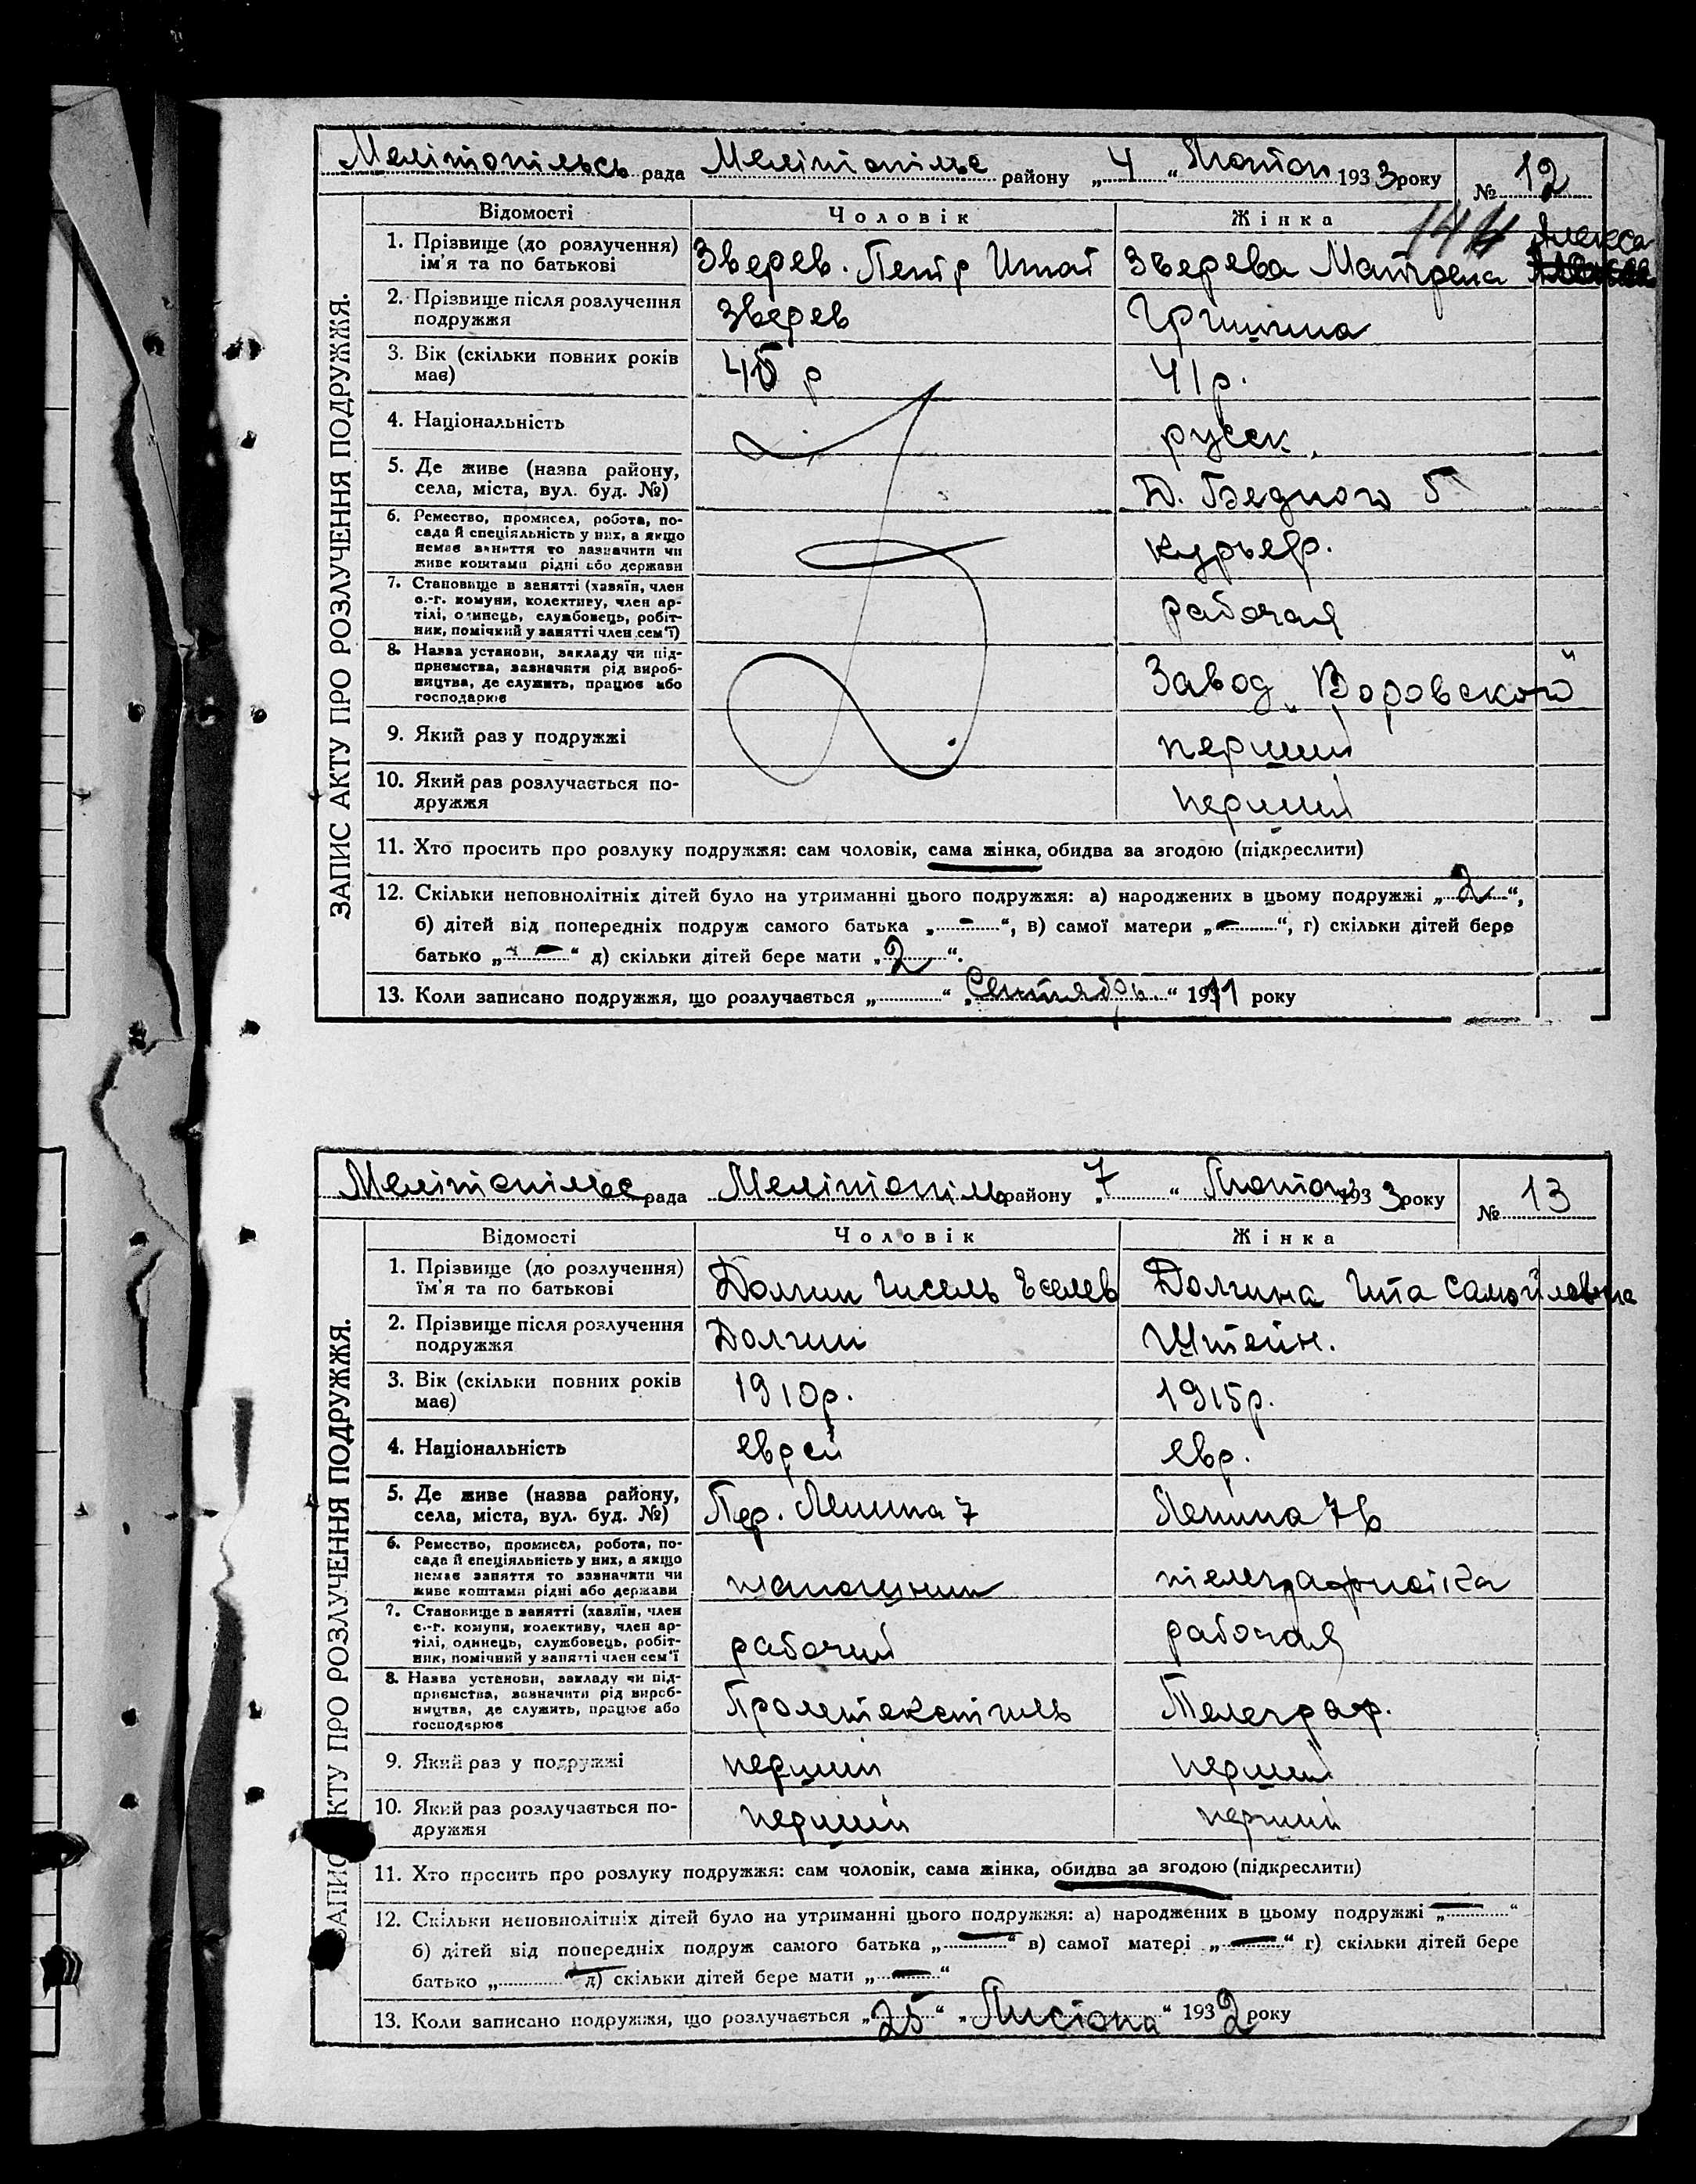 Мелітопільсь рада Мелітопільс району „ 4 “ Лютого 1933 року № 12
Відомості Чоловік Жінка
144
ЗАПИС АКТУ ПРО РОЗЛУЧЕННЯ ПОДРУЖЖЯ.
1. Прізвище (до розлучення) ім'я та по батькові Зверев. Петр Игнат Зверева Матрена Алекса
2. Прізвище після розлучення подружжя Зверев Гришина
3. Вік (скільки повних років має) 45 р 41 р.
4. Національність русск.
5. Де живе (назва району, села, міста, вул. буд. №) Д. Бедного 5
6. Ремество, промисел, робота, посада й спеціяльність у них, а якщо немає заняття то зазначити чи живе коштами рідні або держави курьер.
7. Становище в занятті (хазяїн, член с.-г. комуни, колективу, член артілі, одинець, службовець, робітник, помічний у занятті член сем'ї) рабочая
8. Назва установи, закладу чи підприємства, зазначити рід виробництва, де служить, працює або господарює Завод „Воровского“
9. Який раз у подружжі перший
10. Який раз розлучається подружжя перший
11. Хто просить про розлуку подружжя: сам чоловік, сама жінка, обидва за згодою (підкреслити)
12. Скільки неповнолітніх дітей було на утриманні цього подружжя: а) народжених в цьому подружжі „ 2 “,
б) дітей від попередніх подруж самого батька „ – “, в) самої матери „ – “, г) скільки дітей бере
батько „ – “ д) скільки дітей бере мати „ 2 “.
13. Коли записано подружжя, що розлучається „ “ „ Сентябрь “ 1911 року
Мелітопільс рада Мелітопіль району „ 7 “ Лютого 1933 року № 13
Відомості Чоловік Жінка
ЗАПИС АКТУ ПРО РОЗЛУЧЕННЯ ПОДРУЖЖЯ.
1. Прізвище (до розлучення) ім'я та по батькові Долгин Гисель Долгина Ита Самойловна
2. Прізвище після розлучення подружжя Долгин Штейн.
3. Вік (скільки повних років має) 1910р. 1915р.
4. Національність еврей евр.
5. Де живе (назва району, села, міста, вул. буд. №) Пер. Ленина 7 Ленина 76
6. Ремество, промисел, робота, посада й спеціяльність у них, а якщо немає заняття то зазначити чи живе коштами рідні або держави телеграфистка
7. Становище в занятті (хазяїн, член с.-г. комуни, колективу, член артілі, одинець, службовець, робітник, помічний у занятті член сем'ї рабочий рабочая
8. Назва установи, закладу чи підприємства, зазначити рід виробництва, де служить, працює або господарює Пролетекстиль Телеграф.
9. Який раз у подружжі перший перший
10. Який раз розлучається подружжя перший перший
11. Хто просить про розлуку подружжя: сам чоловік, сама жінка, обидва за згодою (підкреслити)
12. Скільки неповнолітніх дітей було на утриманні цього подружжя: а) народжених в цьому подружжі „ – “
б) дітей від попередніх подруж самого батька „ – “ в) самої матері „ – “ г) скільки дітей бере
батько „ – “ д) скільки дітей бере мати „ – “
13. Коли записано подружжя, що розлучається „ 25 “ „ Листопа “ 1932 року